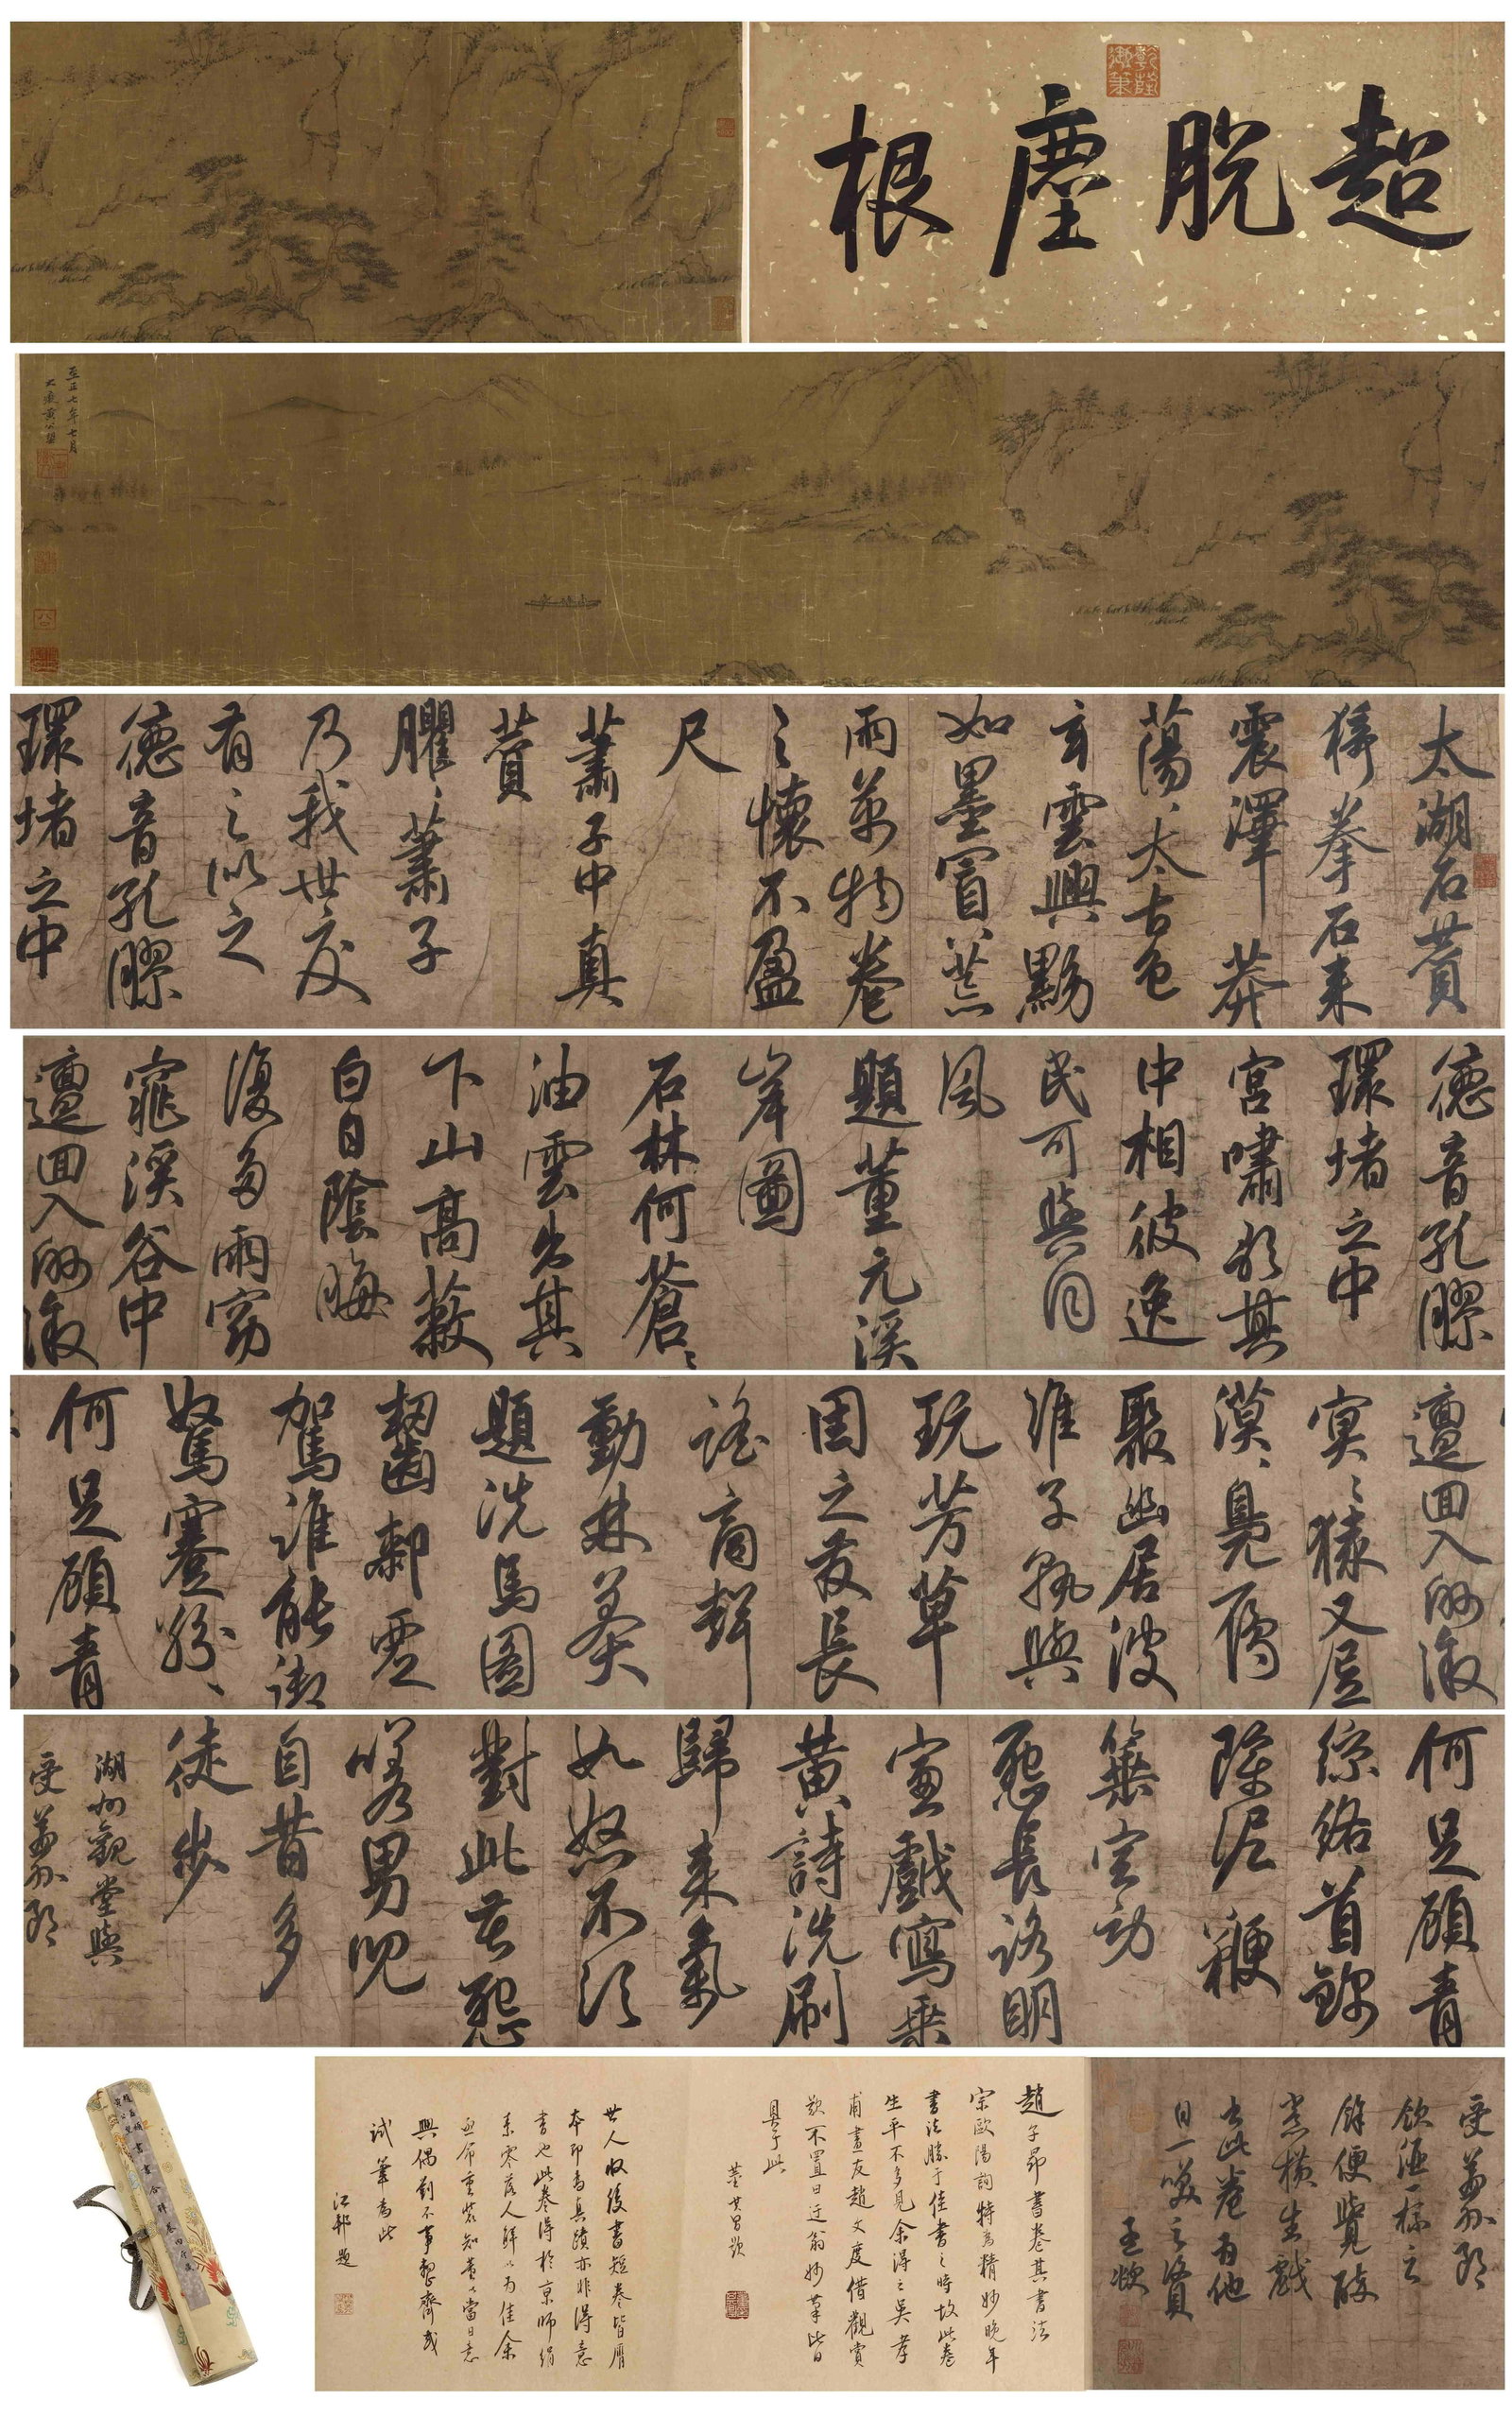 超脫塵根
乾隆御筆
至正七年七月
大癡黃公望
太湖石贊
猗拳石來
震澤莽
蕩、太古色
玄雲興黝
如墨冥、荒
雨萬物卷
之懷不盈
尺
蕭子中真
贊
臞、蕭子
乃我世友
有之似之
德音孔膠
環堵之中
德音孔膠
環堵之中
宮嘯歌其
中相彼逸
民可與同
風
題董元溪
岸圖
石林何蒼、
油雲出其
下山高蔽
白日陰晦
復多雨窈
窕溪谷中
邅回入溆浦
邅回入溆浦
冥、猿又居
漠、鳧雁
聚幽居彼
誰子孰與
玩芳草
因之發長
謠商聲
動林莽
題洗馬圖
齧䣛雲
駕誰能御
駑蹇紛、
何足顧青
何足顧青
絲絡首錦
障泥鞭
箠空勞
怨長路明
窗戲寫乘
黃詩洗刷
歸來氣
如怒不須
對此苦愁
嗟男兒
自昔多
徒步
湖州觀堂與
受益外郎
受益外郎
飲酒一杯之
餘便覺醉
態橫生戲
書此卷為他
日一笑之資
孟頫
趙子昂書卷其書法
宗歐陽詢特為精妙晚年
書法勝于佳書之時故此卷
生平不多見余得之吳孝
甫畫友趙文度借觀賞
歎不置曰迂翁妙筆皆
具于此
董其昌題
世人收後書短卷皆贋
本即為真蹟亦非得意
書也此卷得於京師絹
素零落人鮮以為佳余
亟命重裝知黃公當日意
興偶到不事整齊或
試筆為此
江邨題